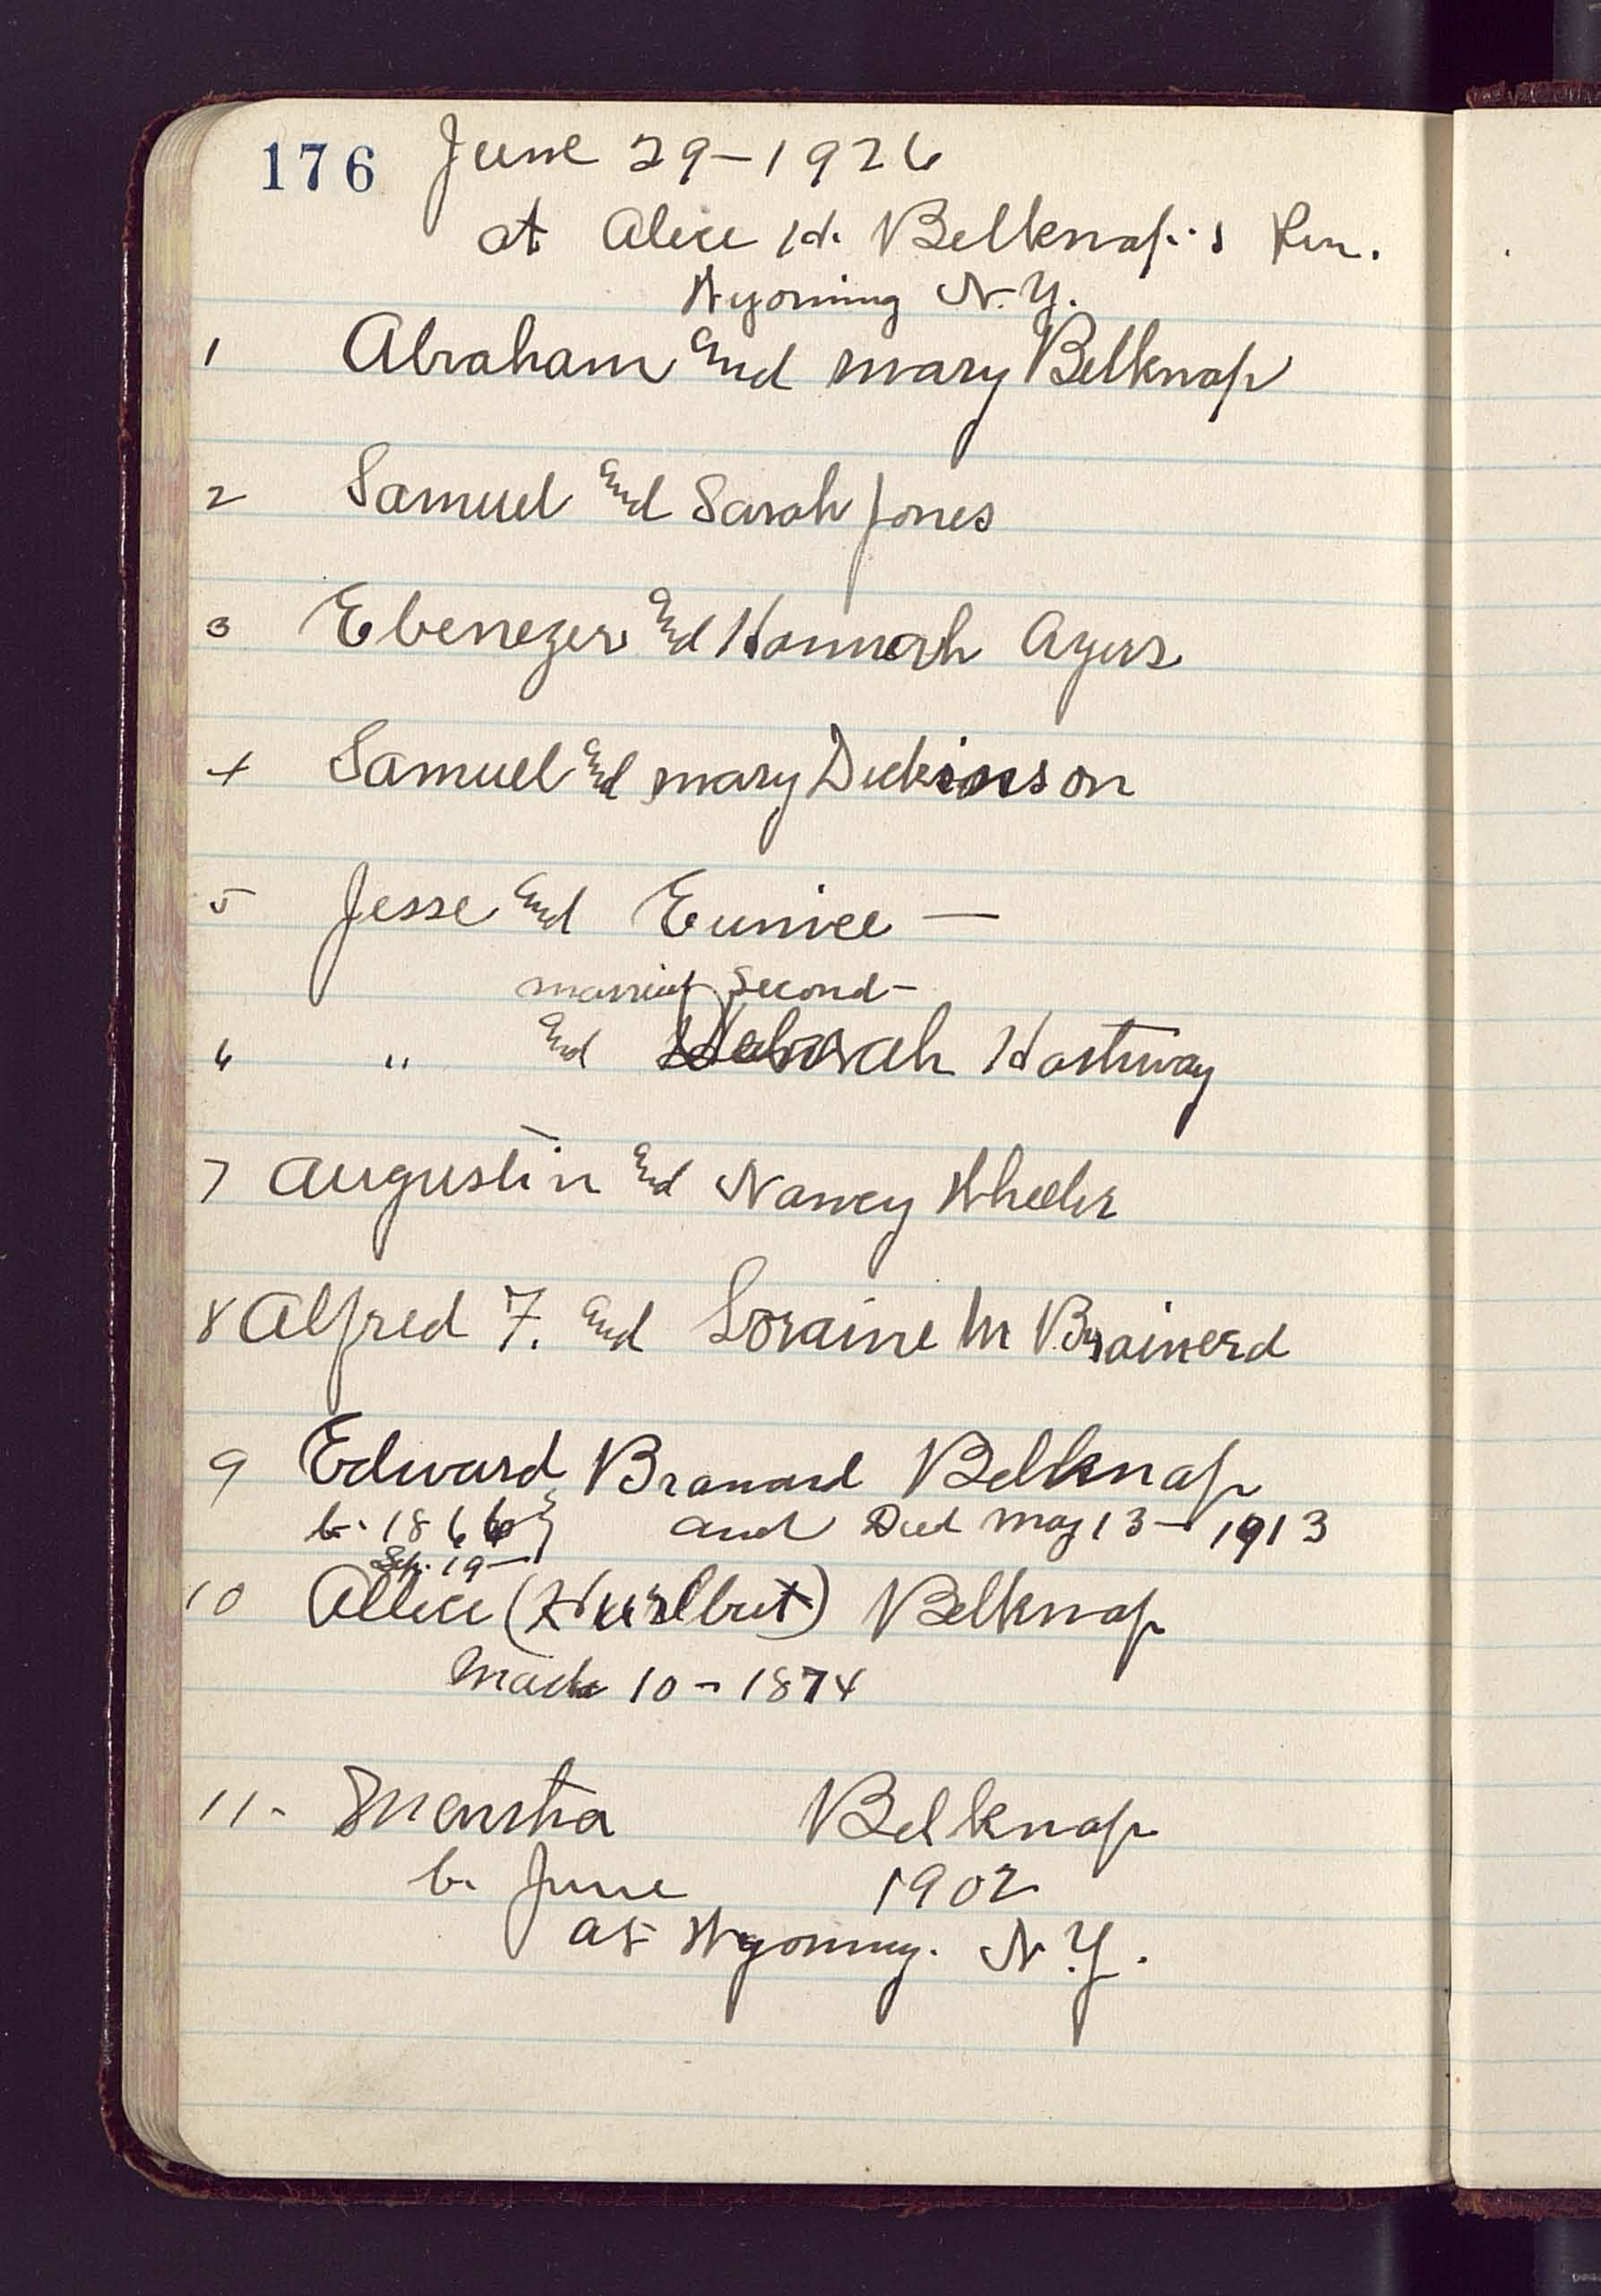 176 June 29-1926
at Alice H. Belknap's
Wyoming N.Y.
1 Abraham and mary Belknap
2 Samuel and Sarah Jones
3 Ebenezer and Hannah Ayers
4 Samuel and mary Dickinson
5 Jesse and Eunice —
married Second-
6 " and Deborah
7 Augustin and Nancy Wheeler
8 Alfred F. and Loraine M Brainerd
9 Edward Belknap
b. 1866 } and Died May 13-1913
Sep. 19-
10 (Hurlbut) Belknap
10-1874
11- Belknap
b. June 1902
at Wyoming. N.Y.